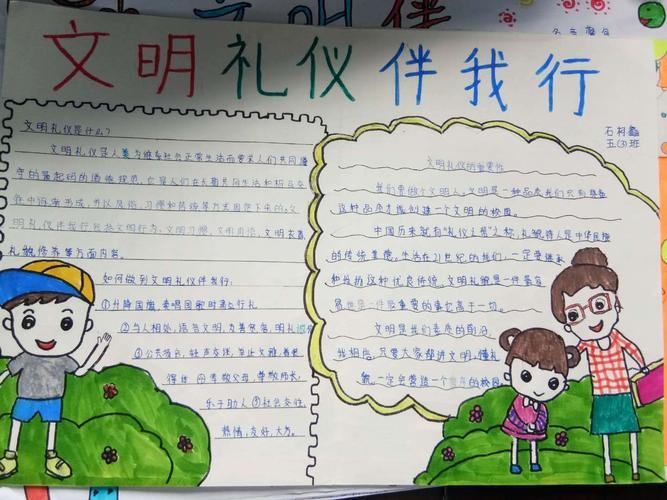 文明礼仪伴我行
石树鑫
五(3)班
文明礼仪是什么?
文明礼仪是人类为维系社会正常生活而要求人们共同遵
守的最起码的道德规范,它是人们在长期共同生活和相互交
往中逐渐形成,并以风俗、习惯和传统等方式固定下来的。文
明礼仪伴我行包括文明行为,文明习惯,文明用语,文明衣着
礼貌修养等方面内容。
如何做到文明礼仪伴我行:
①升降国旗,奏唱国歌时肃立行礼
②与人相处,语言文明,友善宽容,明礼诚信
③公共场合,轻声交谈,至止文雅,着装
得体 ④孝敬父母,尊敬师长,
乐于助人 ⑤社会交往,
热情,友好,大方。
文明礼仪的重要性
我们要做个文明人,文明是一种品质我们只有具备
这种品质才能创建一个文明的校园。
中国历来就有"礼仪之邦"之称,礼貌待人是中华民族
的传统美德,生活在21世纪的我们,一定要继承
和发扬这种优良传统,文明礼貌是一件最容
易也是一件最重要的事它高于一切。
文明是我们素质的前沿,
我相信,只要大家都讲文明,懂礼
貌,一定会营造一个 的校园。